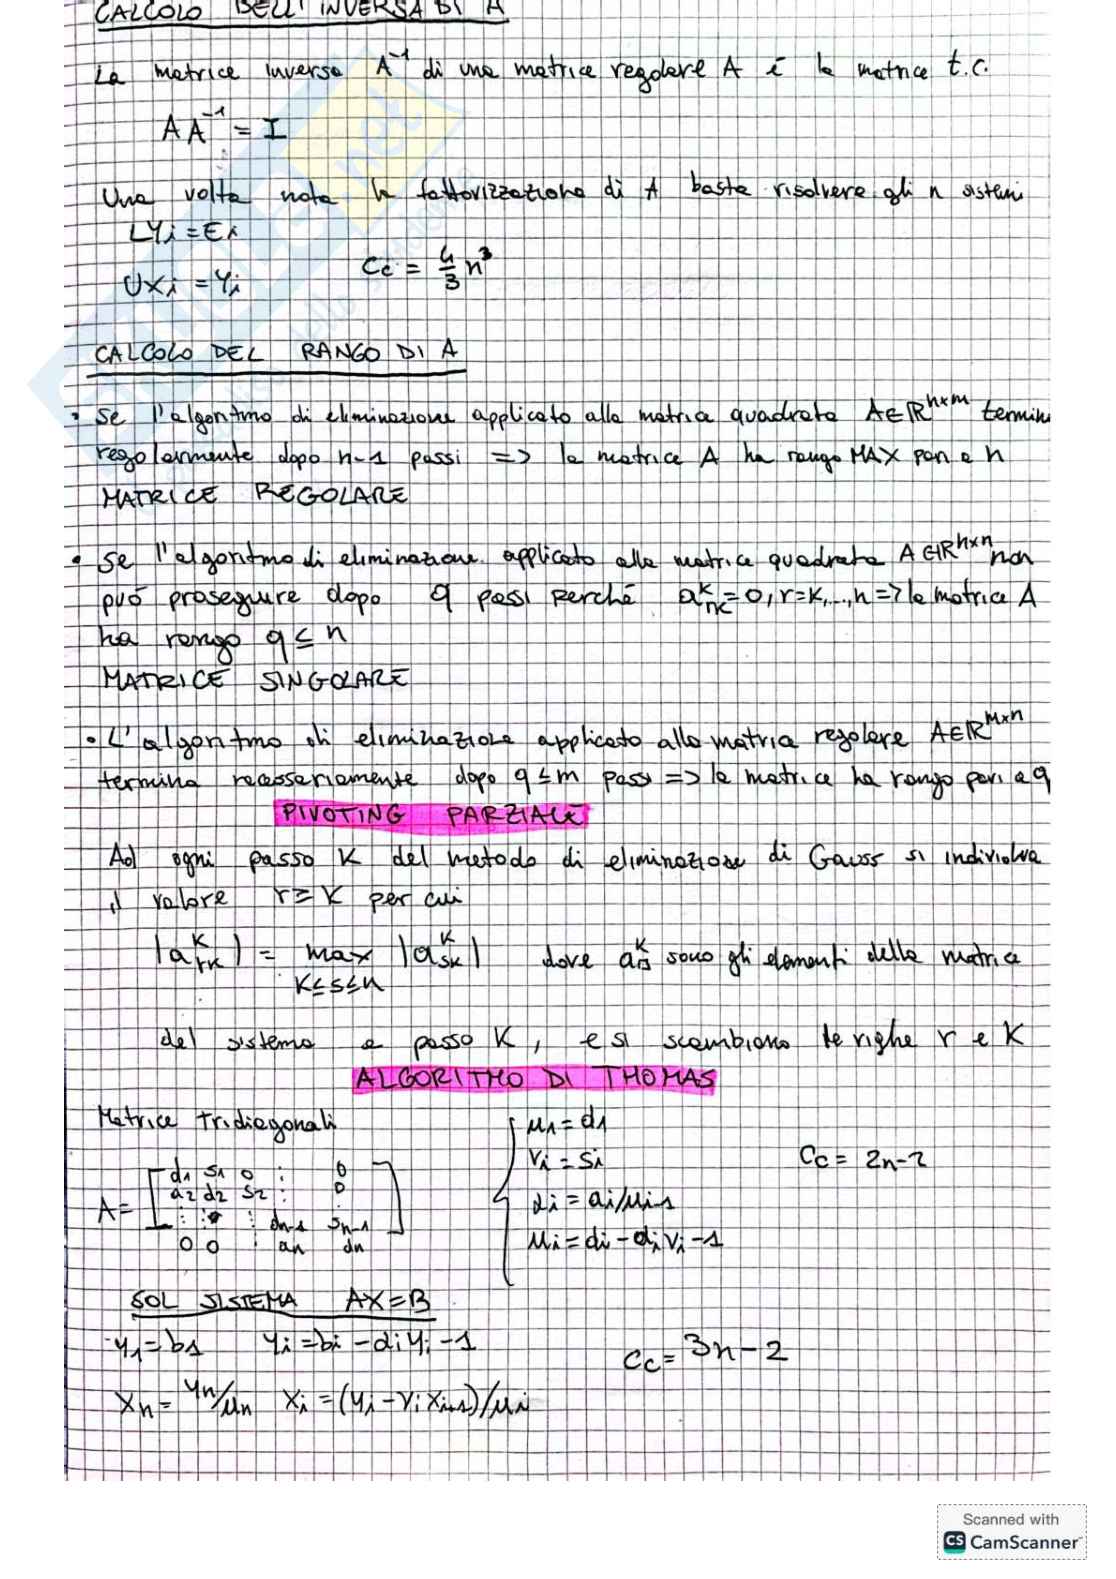 CALCOLO DELL'INVERSA DI A
La matrice inversa A⁻¹ di una matrice regolare A è la matrice t.c.
AA⁻¹ = I
Una volta nota la fattorizzazione di A basta risolvere gli n sistemi
LYi = Ei
UXi = Yi
Cc = 4/3 n³
CALCOLO DEL RANGO DI A
• Se l'algoritmo di eliminazione applicato alla matrice quadrata A∈ℝⁿˣᵐ termina
regolarmente dopo n-1 passi => la matrice A ha rango MAX pari a n
MATRICE REGOLARE
• Se l'algoritmo di eliminazione applicato alla matrice quadrata A∈ℝⁿˣⁿ non
può proseguire dopo q passi perché aᵏrk = 0, r=k,...,n => la matrice A
ha rango q ≤ n
MATRICE SINGOLARE
• L'algoritmo di eliminazione applicato alla matrice regolare A∈ℝᵐˣⁿ
termina necessariamente dopo q ≤ m passi => la matrice ha rango pari a q
PIVOTING PARZIALE
Ad ogni passo K del metodo di eliminazione di Gauss si individua
il valore r ≥ K per cui
|aᴷrk| = max |aᴷsk| dove aᴷ sono gli elementi della matrice
K≤s≤n
del sistema a passo K, e si scambiano le righe r e K
ALGORITMO DI THOMAS
Matrice Tridiagonali
A = [d1 s1 0 : 0
a2 d2 s2 : 0
: : : dn-1 sn-1
0 0 : an dn]
{ μ1 = d1
vi = si
αi = ai/μi-1
μi = di - αivi-1
Cc = 2n-2
SOL SISTEMA AX=B
y1 = b1 yi = bi - αiyi-1
Cc = 3n-2
Xn = yn/μn Xi = (yi - viXi+1)/μi
Scanned with
CS CamScanner